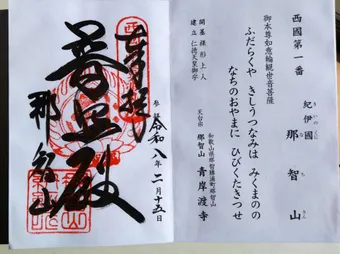 西國第一番
紀伊國
きいのくに
那智山
な ち さん
御本尊如意輪観世音菩薩
ふだらくや きしうつなみは みくまのの
なちのおやまに ひびくたきつせ
開基 裸形上人
建立 仁徳天皇御宇
天台宗
和歌山県那智勝浦町那智山
那智山 青岸渡寺
参拝 令和八年二月十五日
奉拝
普照殿
那智山